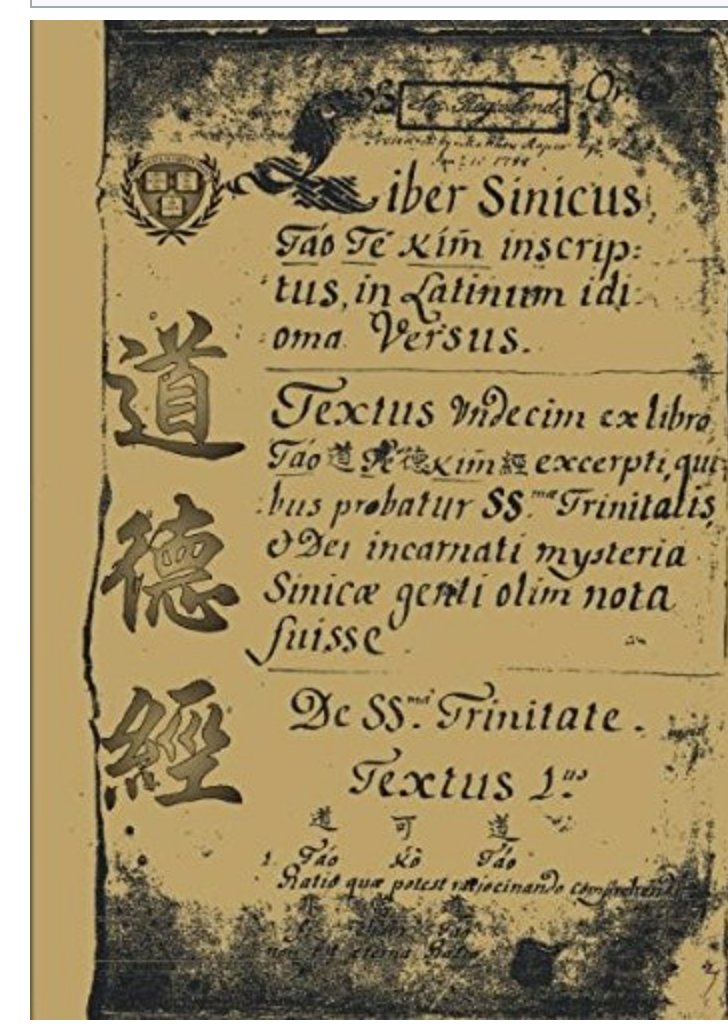 Soc. Reg. Lond.
Liber Sinicus,
Táo Tĕ Kím inscrip:
tus, in Latinum idi
oma Versus.
Textus Vndecim ex libro
Táo 道 Tĕ 德 Kím 經 excerpti, qui:
bus probatur SS.mæ Trinitatis,
& Dei incarnati mysteria
Sinicæ genti olim nota
fuisse.
De SS.mâ Trinitate.
Textus 1.us
道 可 道
1. Táo Kò Táo
Ratio quæ potest ratiocinando comprehendi
non est æterna Ratio
道
德
經